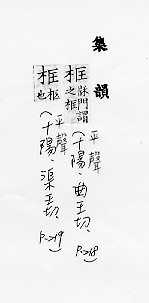 集韻
框牀門謂之框(平聲十陽、曲王切、P.218)
框柩也(平聲十陽、渠王切、P.219)